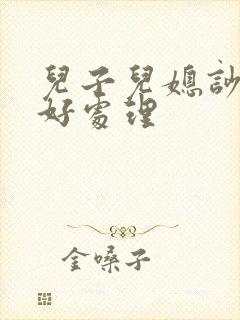 兒子兒媳
好處理
金嗓子